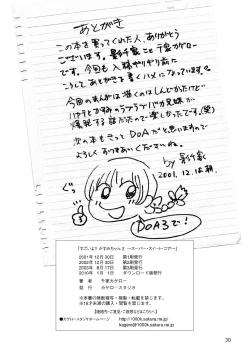 あとがき
この本を買ってくれた人、ありがとう
ございます。影行家こと千家カゲロー
です。今回も入稿ギリギリ前に
こうしてあとがきを書くハメになっています。
今回のまんがは描くのはしんどかったけど
次の本もきっとDOAだと思いますので
よろしくおつきあいくださいね。
by
2001.12.
DOA3で!
『すごいよ!! かすみちゃん2 ～スーパー・スイート・コアー』
2001年12月30日 第1刷発行
2002年12月30日 第2刷発行
2003年8月17日 第3刷発行
2010年1月1日 ダウンロード版発行
著 者 千家カゲロー
発 行 カゲロー・スタジオ
※本書の無断複写・複製・転載を禁じます。
※18才未満の購入・閲覧を禁じます。
【連絡先・ご意見・ご感想などはこちらへ】
●カゲロースタジオホームページ http://1000k.sakura.ne.jp
kagero@1000k.sakura.ne.jp
30